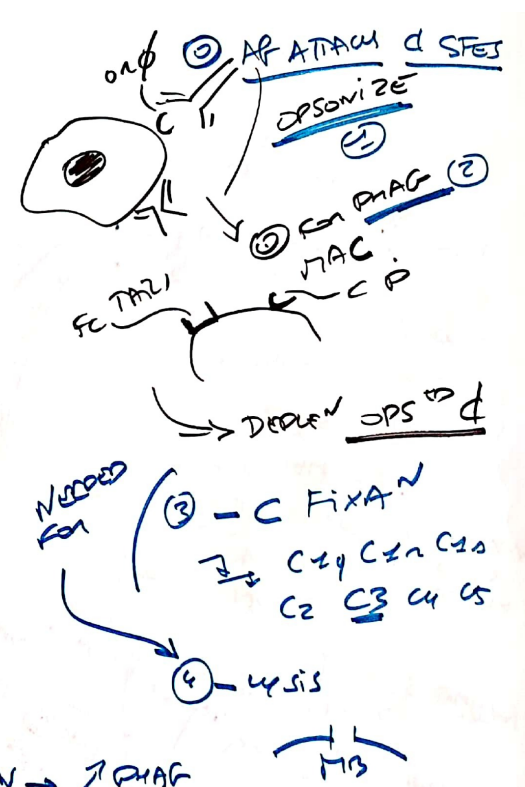 or φ
① Ab ATTACH ₵ SFES
OPSONIZE
①
① FOR PHAG ②
MAC
Fc
C
DEPLEN OPSED ₵
NEEDED
FOR
③ - C FIXAN
C1q C1r C1s
C2 C3 C4 C5
④ - LYSIS
MB
N → ↑ PHAG